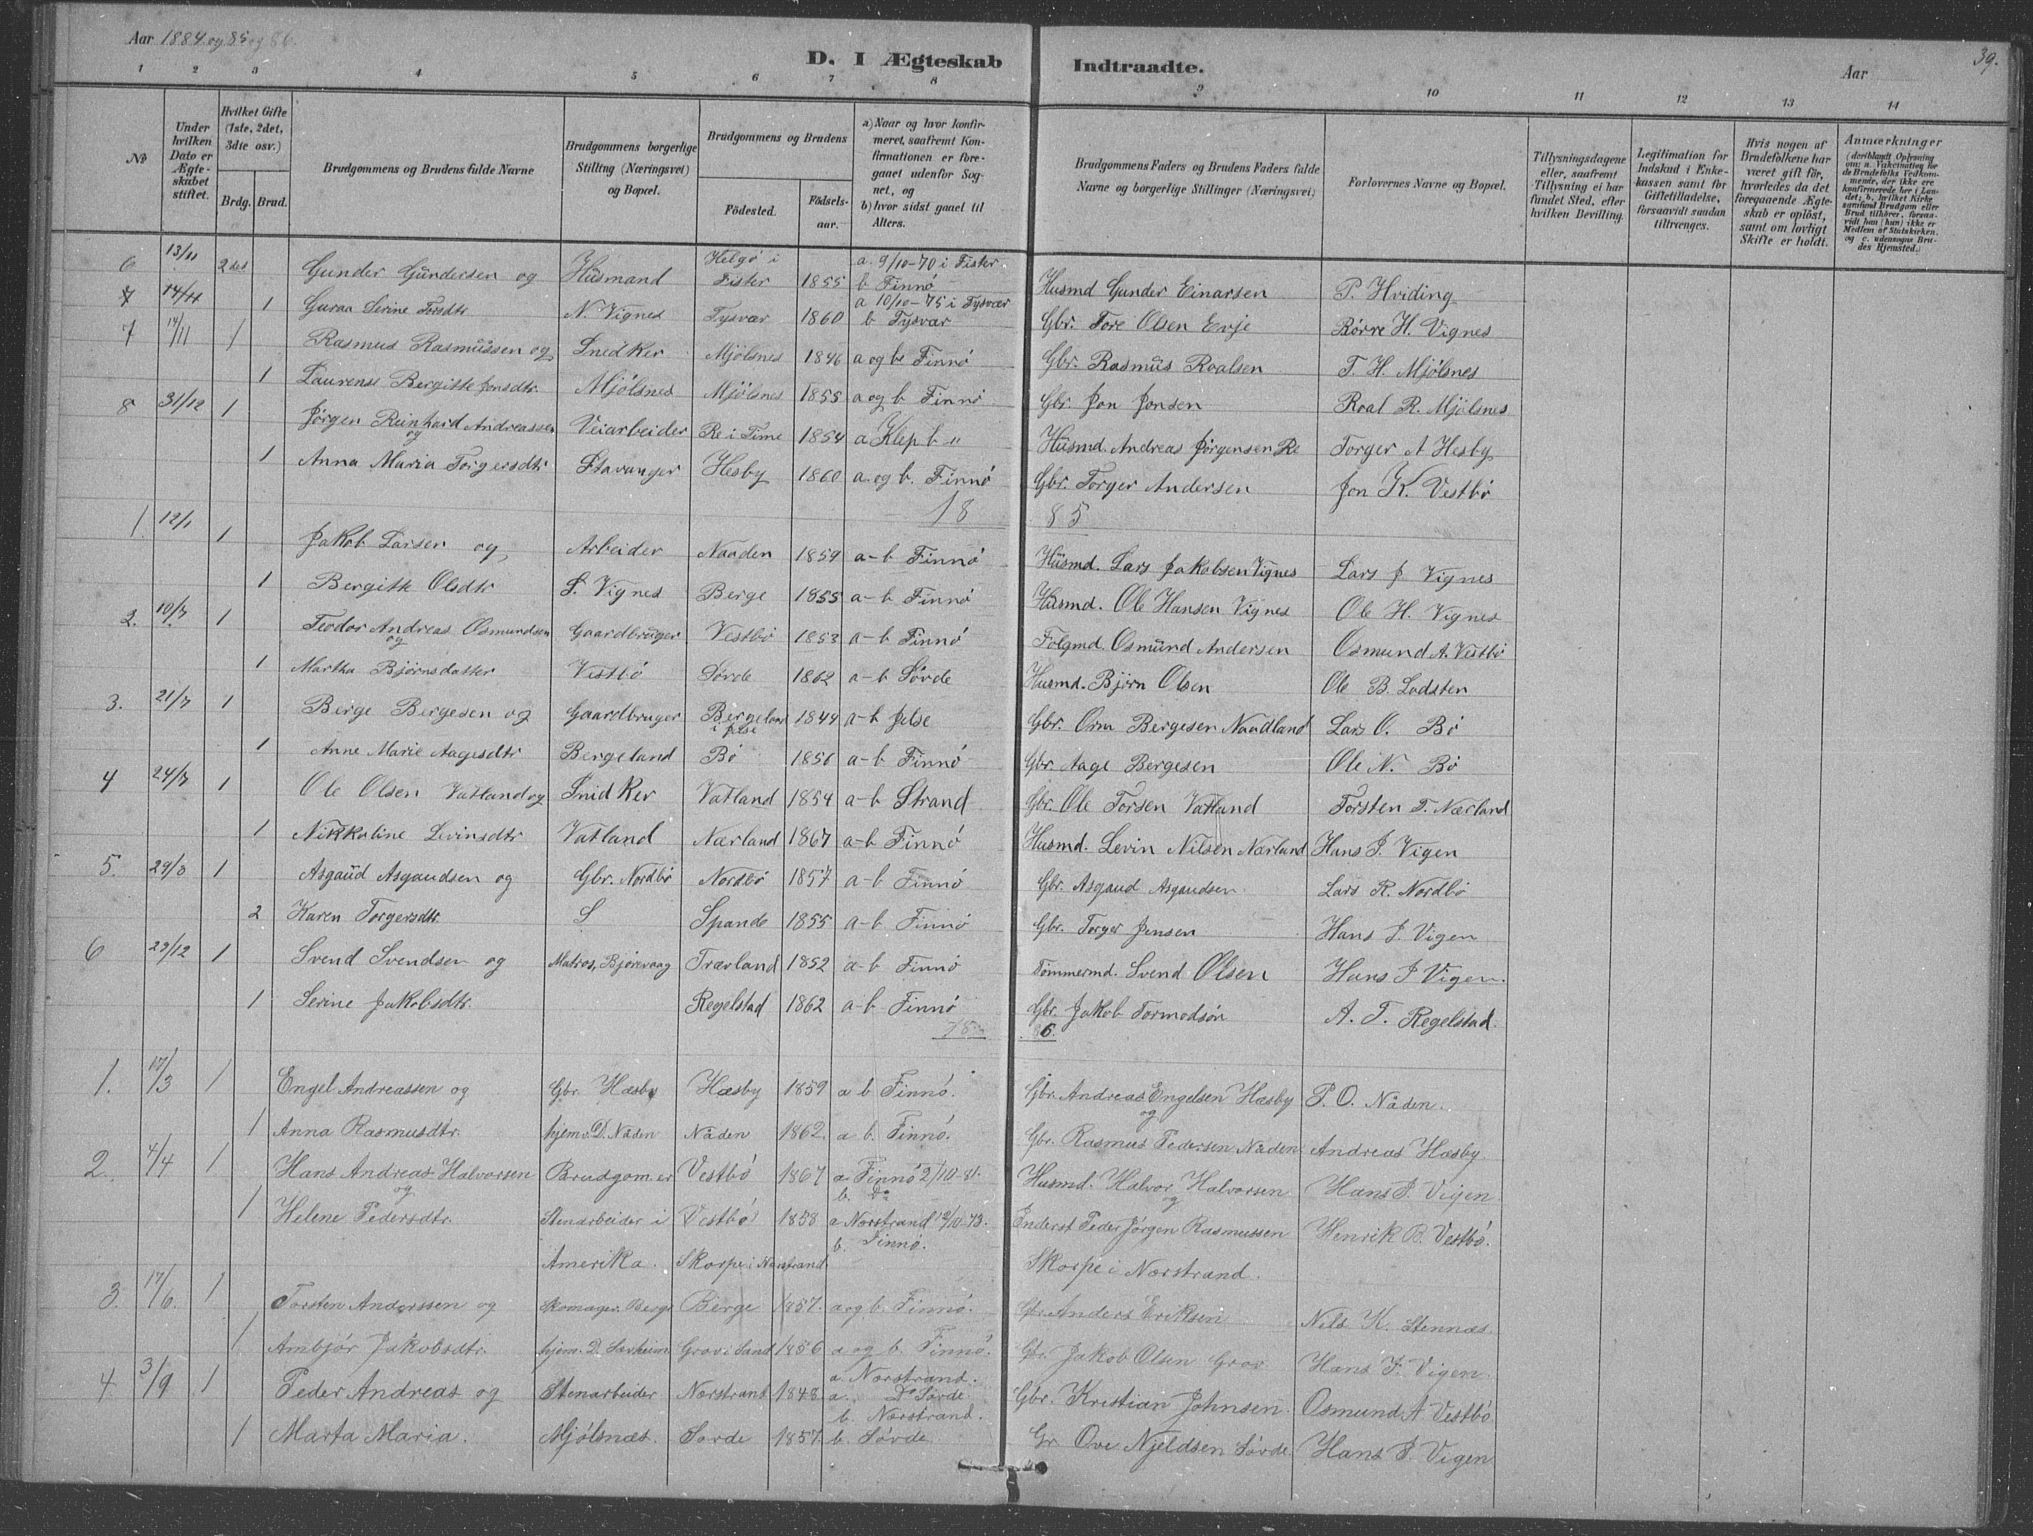 Aar 1884 og 85 og 86.
D. I Ægteskab Indtraadte.
Aar
39.
1 2 3 4 5 6 7 8 9 10 11 12 13 14
No
Under hvilken Dato er Ægteskabet stiftet.
Hvilket Gifte (1ste, 2det, 3die osv.)
Brdg. Brud.
Brudgommens og Brudens fulde Navne
Brudgommens borgerlige Stilling (Næringsvei) og Bopæl.
Brudgommens og Brudens
Födested.
Födsels-aar.
a) Naar og hvor konfirmeret, saafremt Konfirmationen er foregaaet udenfor Sognet, og
b) hvor sidst gaaet til Alters.
Brudgommens Faders og Brudens Faders fulde Navne og borgerlige Stillinger (Næringsvei)
Forlovernes Navne og Bopæl.
Tillysningsdagene eller, saafremt Tillysning ei har fundet Sted, efter hvilken Bevilling.
Legitimation for Indskud i Enkekassen samt for Giftetilladelse, forsaavidt saadan tiltrænges.
Hvis nogen af Brudefolkene har været gift för, hvorledes da det foregaaende Ægteskab er oplöst, samt om lovligt Skifte er holdt.
Anmærkninger
6 13/11 2det Gunder Gundersen og Husmand Helgö i Fister 1855 a. 9/10-70 i Fister b Finnö Husmd Gunder Einarsen P. Hviding
7 14/11 1 Guraa Serine Torsdtr N. Vignes Tysvær 1860 a 10/10-75 i Tysvær b Tysvær Gbr. Tore Olsen Evje Börre H. Vignes
7 14/11 1 Rasmus Rasmussen og Snedker Mjölsnes 1846 a og b Finnö Gbr. Rasmus Roalsen T. H. Mjölsnes
1 Laurense Bergitte Jonsdtr. Mjölsnes Mjölsnes 1855 a og b Finnö Gbr Jon Jonsen Roal R. Mjölsnes
8 31/12 1 Jörgen Reinhard Andreassen og Veiarbeider Re i Time 1854 a Klep b " Husmd. Andreas Jörgensen Re Torger A Hesby
1 Anna Maria Torgersdtr Stavanger Hesby 1860 a. og b. Finnö Gbr. Torger Andersen Jon K. Vestbö
18 85
1. 12/1 1 Jakob Larsen og Arbeider Naaden 1859 a-b Finnö Husmd. Lars Jakobsen Vignes Lars J Vignes
1 Bergitte Olsdtr S. Vignes Berge 1855 a-b Finnö Husmd. Ole Hansen Vignes Ole H. Vignes
2. 10/7 1 Teodor Andreas Osmundsen og Gaardbruger Vestbö 1853 a-b Finnö Folgmd. Osmund Andersen Osmund A. Vestbö
1 Martha Björnsdatter Vestbö Sövde 1862 a-b Sövde Husmd. Björn Olsen Ole B. Lodsten
3. 21/7 1 Berge Bergesen og Gaardbruger Bergeland i Jelse 1849 a-b Jelse Gbr. Orm Bergesen Naadland Lars O. Bö
1 Anne Marie Aagesdtr Bergeland Bö 1856 a-b Finnö Gbr. Aage Bergesen Ole N. Bö
4 24/7 1 Ole Olsen Vatland og Snidker Vatland 1854 a-b Strand Gbr. Ole Torsen Vatland Torsten T. Nærland
1 Nikkoline Levinsdtr Vatland Nærland 1867 a-b Finnö Husmd. Levin Nilsen Nærland Hans J. Vigen
5. 29/8 1 Asgaud Asgaudsen og Gbr. Nordbö Nordbö 1857 a-b Finnö Gbr Asgaud Asgaudsen Lars R. Nordbö
2 Karen Torgersdtr. S Spande 1855 a-b Finnö Gbr. Torger Jensen Hans J. Vigen
6 29/12 1 Svend Svendsen og Matros, Björevaag Trærland 1852 a-b Finnö Tömmermd. Svend Olsen Hans J Vigen.
1 Serine Jakobsdtr. Regelstad 1862 a-b Finnö Gbr. Jakob Tormodsön A. T. Regelstad.
18 86.
1. 17/3 1 Engel Andreassen og Gbr. Hæsby Hæsby 1859 a b Finnö. Gbr. Andreas Engelsen Hæsby og P. O. Nåden.
1 Anna Rasmusdtr. hjem. D. Nåden Nåden 1862. a b. Finnö. Gbr. Rasmus Pedersen Nåden Andreas Hæsby.
2. 4/4 1 Hans Andreas Halvorsen og Brudgom er Vestbö 1867 a Finnö 2/10-81. b. Do Husmd. Halvor Halvorsen og Hans J. Vigen
1 Helene Pedersdtr. Stenarbeider i Vestbö 1858 a Norstrand 12/10-73. b. Finnö. Inderst Peder Jörgen Rasmussen Henrik B. Vestbö.
Amerika. Skorpe i Nærstrand Skorpe i Nærstrand.
3. 17/6. 1 Torsten Anderssen og Skomager. Berge Berge 1857. a og b. Finnö. Gbr. Anders Eriksen Nils K. Stennæs.
1 Ambjör Jakobsdtr. hjem. D. Savheim Grov i Sand 1856 a og b. Finnö. Gbr. Jakob Olsen Grov Hans J. Vigen.
4. 3/9 1 Peder Andreas og Stenarbeider Nærstrand 1848 a. Norstrand. a. Do Sövde Gbr. Kristian Johnsen. Osmund A Vestbö
1 Marta Maria. Mjölsnæs. Sövde 1857. b. Norstrand. b. Sövde. Gr Ove Njeldsen Sövde Hans J. Vigen